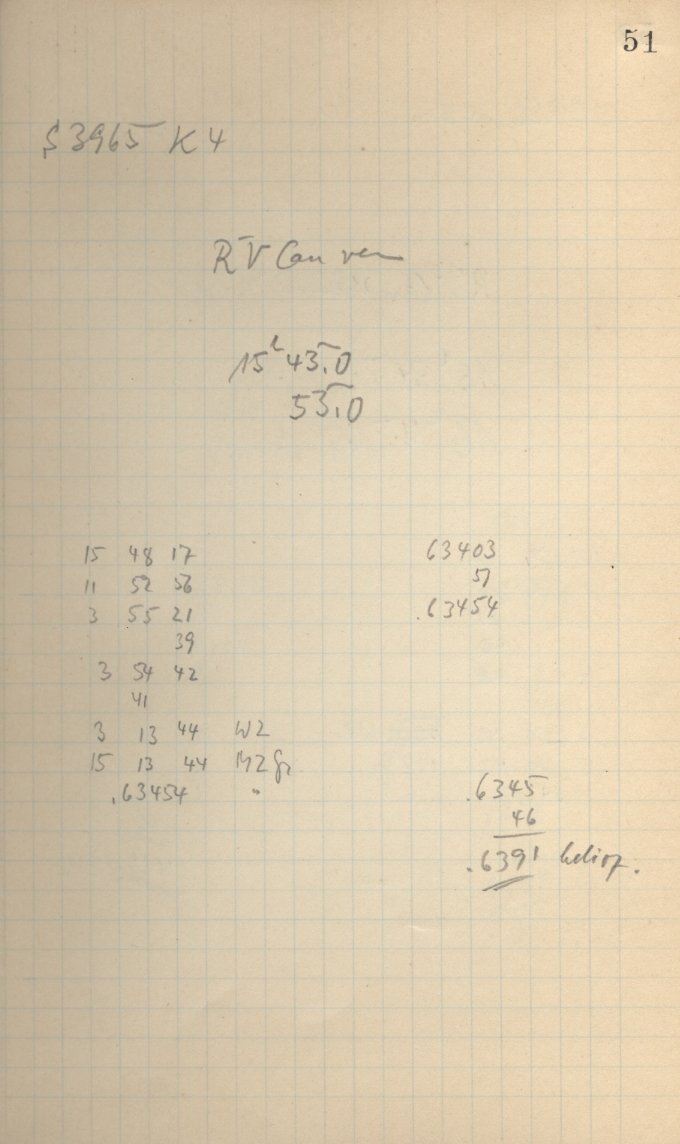 51
S 3965 K 4
RV Can ven
15h 43.0
53.0
15 48 17
11 52 56
3 55 21
39
3 54 42
41
3 13 44 WZ
15 13 44 MZ Gr
.63454 "
63403
51
.63454
.6345
46
.6391 helioz.